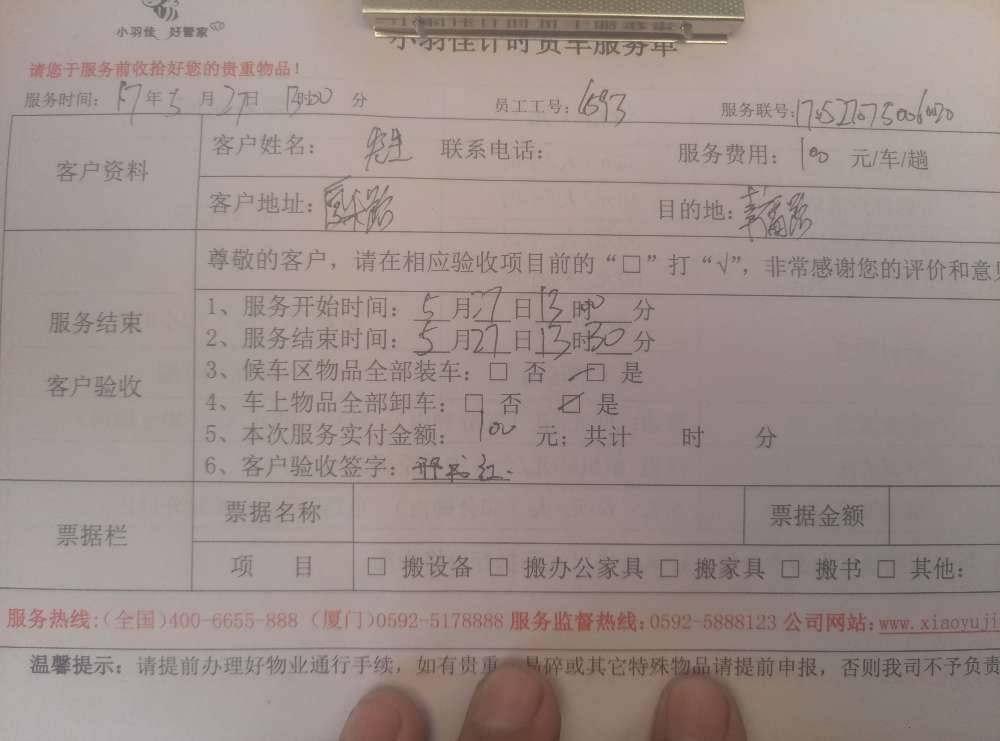 小羽佳 好管家
小羽佳计时货车服务单
请您于服务前收拾好您的贵重物品！
服务时间：17年5月27日 13时00分 员工工号：1593 服务联号：
客户资料
客户姓名：先生 联系电话： 服务费用：100 元/车/趟
客户地址： 目的地：
服务结束
客户验收
尊敬的客户，请在相应验收项目前的“□”打“√”，非常感谢您的评价和意见
1、服务开始时间：5月27日13时00分
2、服务结束时间：5月27日13时30分
3、候车区物品全部装车：□ 否 □ 是
4、车上物品全部卸车：□ 否 ☑ 是
5、本次服务实付金额：100 元；共计 时 分
6、客户验收签字：
票据栏
票据名称 票据金额
项 目 □ 搬设备 □ 搬办公家具 □ 搬家具 □ 搬书 □ 其他：
服务热线：（全国）400-6655-888（厦门）0592-5178888 服务监督热线：0592-5888123 公司网站：www.xiaoyuji
温馨提示：请提前办理好物业通行手续，如有贵重 易碎或其它特殊物品请提前申报，否则我司不予负责